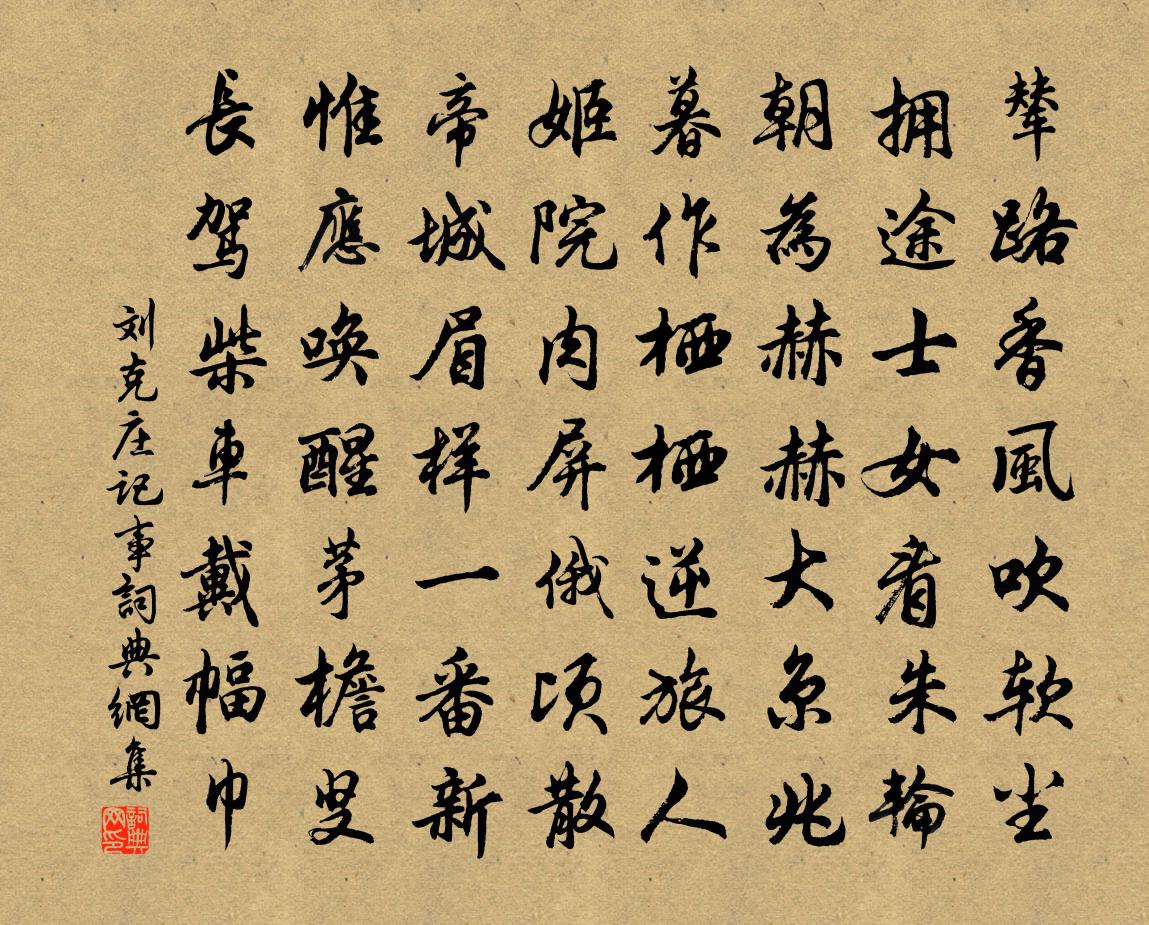 辇路香風吹软尘
拥途士女看朱輪
朝為赫赫大京兆
暮作栖栖逆旅人
姬院肉屏俄顷散
帝城眉样一番新
惟應唤醒茅檐叟
長驾柴車戴幅巾
刘克庄记事詞典網集
詞典网印